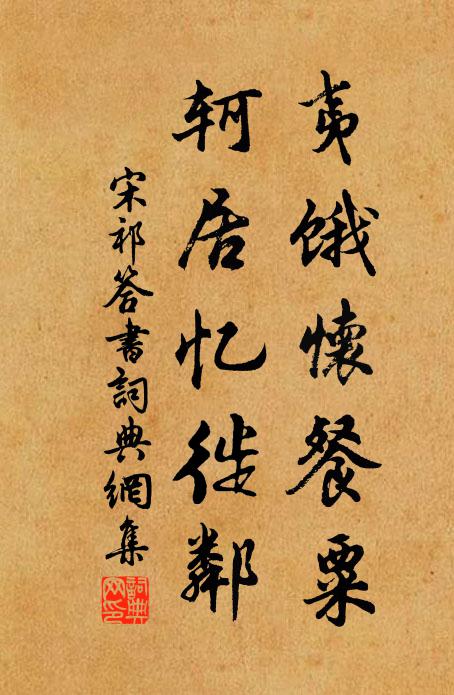 夷餓懷餐粟
軻居忆徙鄰
宋祁答書詞典網集